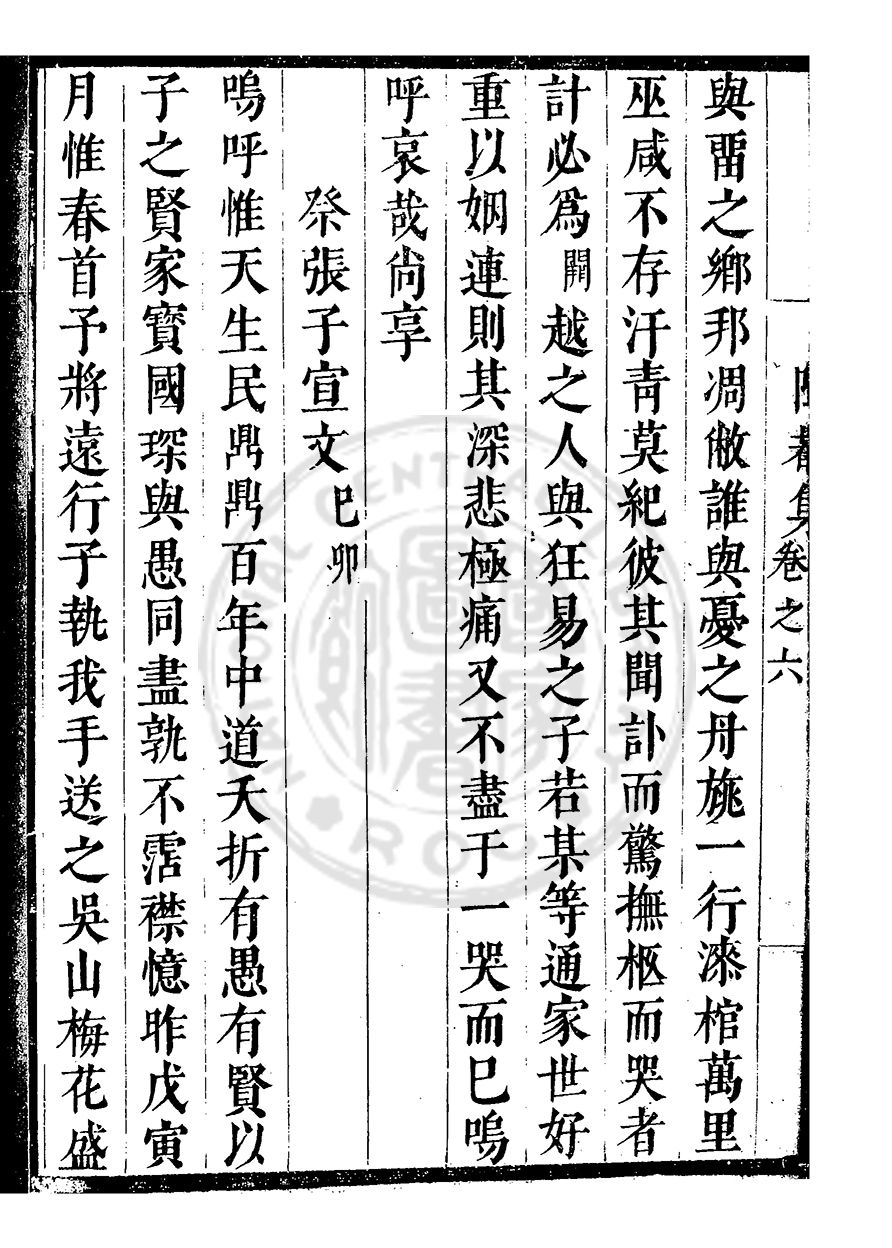 菴集卷之六
與畱之鄉邦凋敝誰與憂之丹旐一行漆棺萬里
巫咸不存汗青莫紀彼其聞訃而驚撫柩而哭者
計必爲闕越之人與狂易之子若某等通家世好
重以姻連則其深悲極痛又不盡于一哭而巳嗚
呼哀哉尚享
祭張子宣文巳卯
嗚呼惟天生民鼎鼎百年中道夭折有愚有賢以
子之賢家寶國琛與愚同盡孰不霑襟憶昨戊寅
月惟春首予將遠行子執我手送之吳山梅花盛